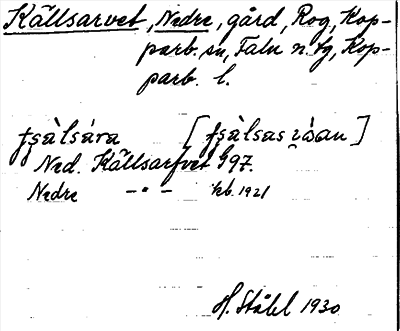 Källsarvet, Nedre, gård, Rog, Kop-
parb. sn, Falu n. tg, Kop-
parb. l.
tsàlsára [tsàlsas
Ned. Källsarfvet G97.
Nedre —"— kb. 1921
H. Ståhl 1930